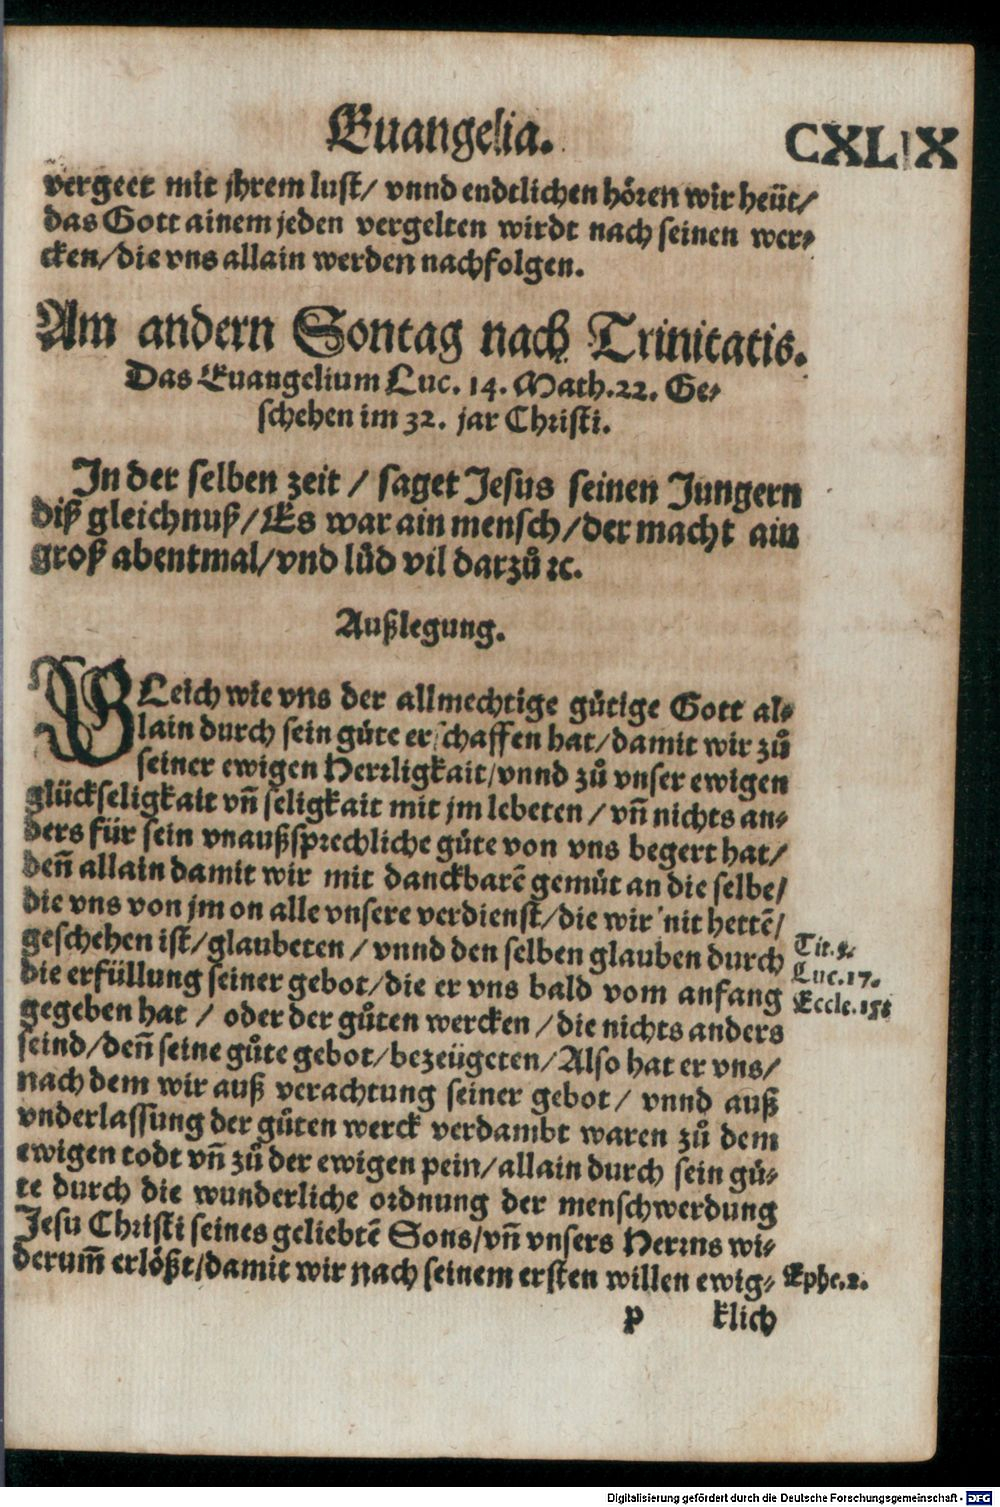 Euangelia.
CXLIX
vergeet mit jhrem lust/ vnnd endtlichen hören wir heüt/
das Gott ainem jeden vergelten wirdt nach seinen wer⸗
cken/die vns allain werden nachfolgen.
Am andern Sontag nach Trinitatis.
Das Euangelium Luc. 14. Math. 22. Ge⸗
schehen im 32. jar Christi.
In der selben zeit / saget Jesus seinen Jungern
diß gleichnuß/ Es war ain mensch/der macht ain
groß abentmal/vnd lůd vil darzů ꝛc.
Außlegung.
GLeich wie vns der allmechtige gůtige Gott al⸗
lain durch sein gůte erschaffen hat/damit wir zů
seiner ewigen Herrligkait/vnnd zů vnser ewigen
glückseligkait vn̄ seligkait mit jm lebeten / vn̄ nichts an⸗
ders für sein vnaußsprechliche gůte von vns begert hat/
den̄ allain damit wir mit danckbarē gemůt an die selbe/
die vns von jm on alle vnsere verdienst/die wir nit hettē/
geschehen ist/glaubeten / vnnd den selben glauben durch
die erfüllung seiner gebot/die er vns bald vom anfang
gegeben hat / oder der gůten wercken /die nichts anders
seind/den̄ seine gůte gebot/bezeügeten/Also hat er vns/
nach dem wir auß verachtung seiner gebot/ vnnd auß
vnderlassung der gůten werck verdambt waren zů dem
ewigen todt vn̄ zů der ewigen pein/allain durch sein gů⸗
te durch die wunderliche ordnung der menschwerdung
Jesu Christi seines geliebtē Sons/vn̄ vnsers Herrns wi⸗
derum̄ erlößt/damit wir nach seinem ersten willen ewig⸗
Tit.
Luc. 17.
Eccle.
Ephe. 2.
p klich
Digitalisierung gefördert durch die Deutsche Forschungsgemeinschaft - DFG